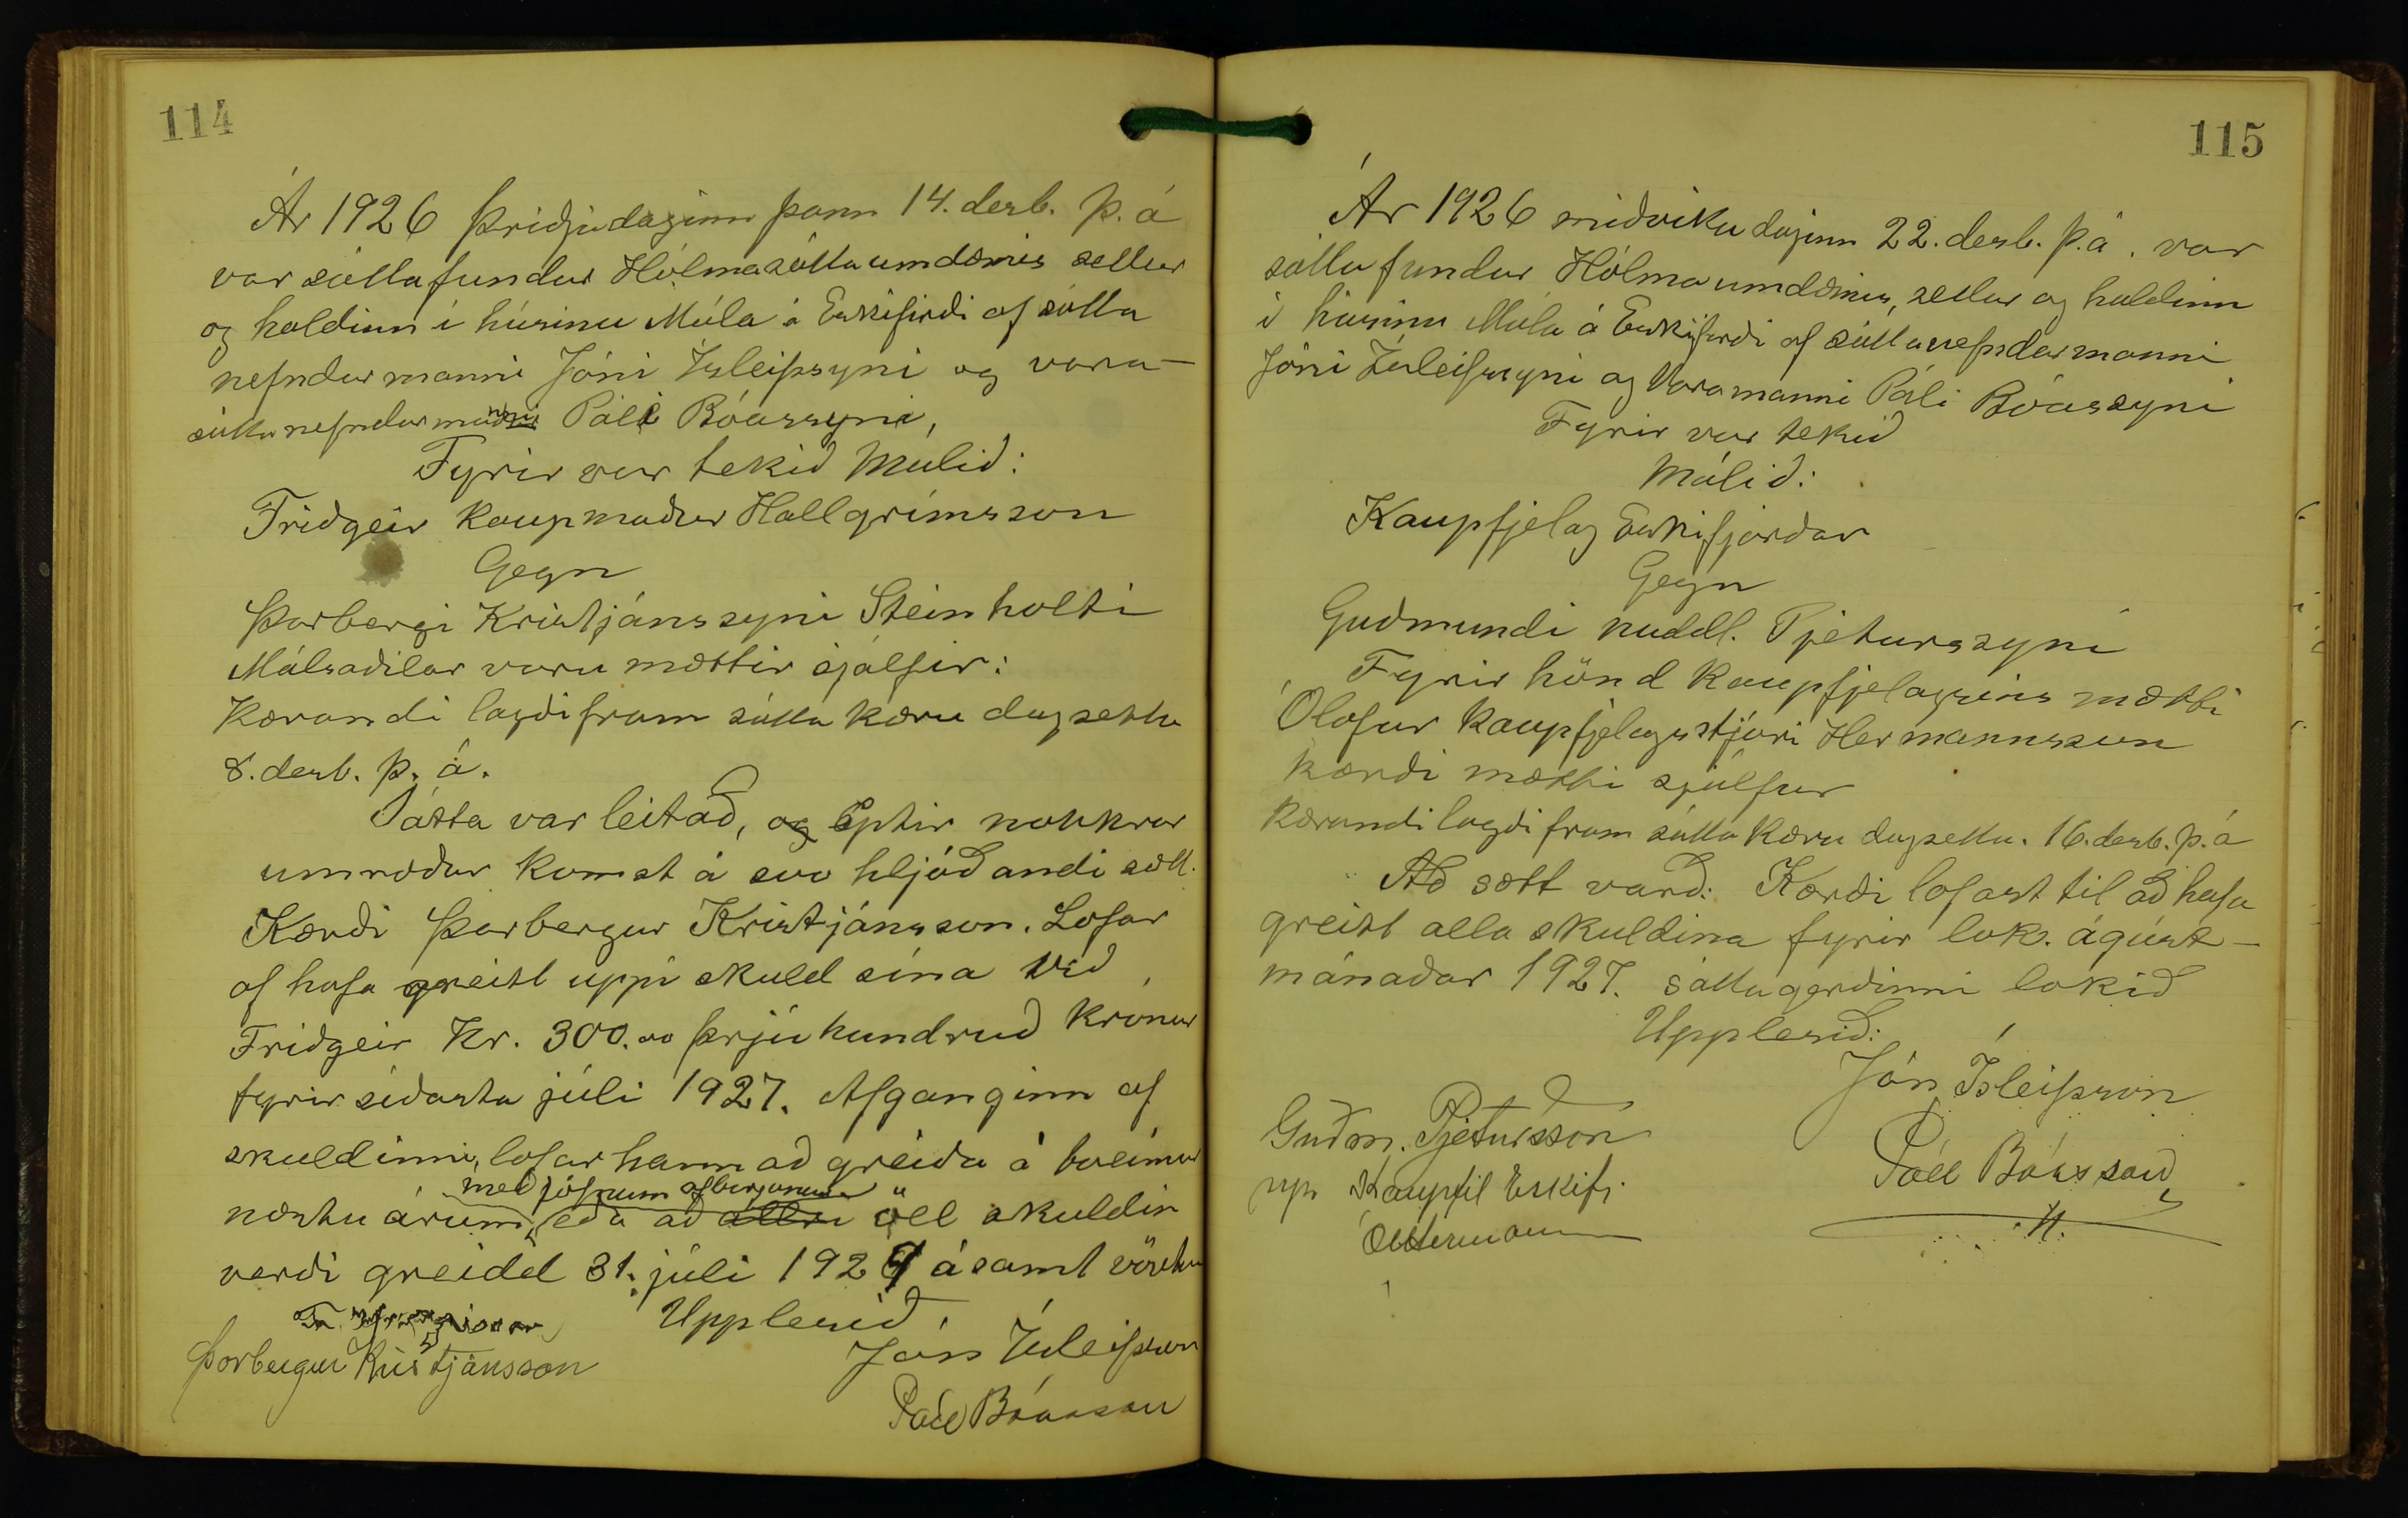 114
Ár 1926 þriðjudaginn þann 14. desb. þ. á
var sáttafundur Hólmasáttaumdæmis settur
og haldinn í húsinu Múla á Eskifirði af sátta
nefndarmanni Jóni Ísleifssyni og vara-
sáttanefndarmanni Páli Bóassyni,
Fyrir var tekið Málið:
Friðgeir kaupmaður Hallgrímsson
Gegn
Þorbergi Kristjánssyni Steinholti
Málsaðilar voru mættir sjálfir:
Kærandi lagði fram sátta kæru dagsettu
8. desb. þ. á.
Sátta var leitað, og Eptir nokkrar
umræður komst á svo hljóðandi sætt.
Kærði Þorbergur Kristjánsson. Lofar
af hafa greitt uppí skuld sína við
Friðgeir Kr. 300.00 þrjú hundruð krónur
fyrir síðasta júlí 1927. Afganginn af
skuldinni, lofar hann að greiða á tveimur
með jöfnum afborgunum
næstu árum, eða að allri öll skuldin
verði greidd 31. júlí 1929 ásamt vöxtum
Upplesið.
Þorbergur Kristjánsson
Jón Ísleifsson
Páll Bóasson
115
Ár 1926 miðvikudaginn 22. desb. þ.á. var
sáttafundur Hólmaumdæmis, settur og haldinn
í húsinu Múla á Eskifirði af sáttanefndarmanni
Jóni Ísleifssyni og Varamanni Páli Bóassyni
Fyrir var tekið
Málið:
Kaupfjelag Eskifjarðar
Gegn
Guðmundi nuddl. Pjeturssyni
Fyrir hönd Kaupfjelagsins mætti
Ólafur Kaupfjelagsstjóri Hermannsson
kærði mætti sjálfur
Kærandi lagði fram sátta kæru dagsettu. 16. desb. þ.á
Að sætt varð: Kærði lofast til að hafa
greitt alla skuldina fyrir lok. ágúst-
mánaðar 1927. sáttagerðinni lokið
Upplesið:
Jón Ísleifsson
Guðm. Pjetursson
Páll Bóasson
pr Kaupfél Eskifj.
ÓlHermann